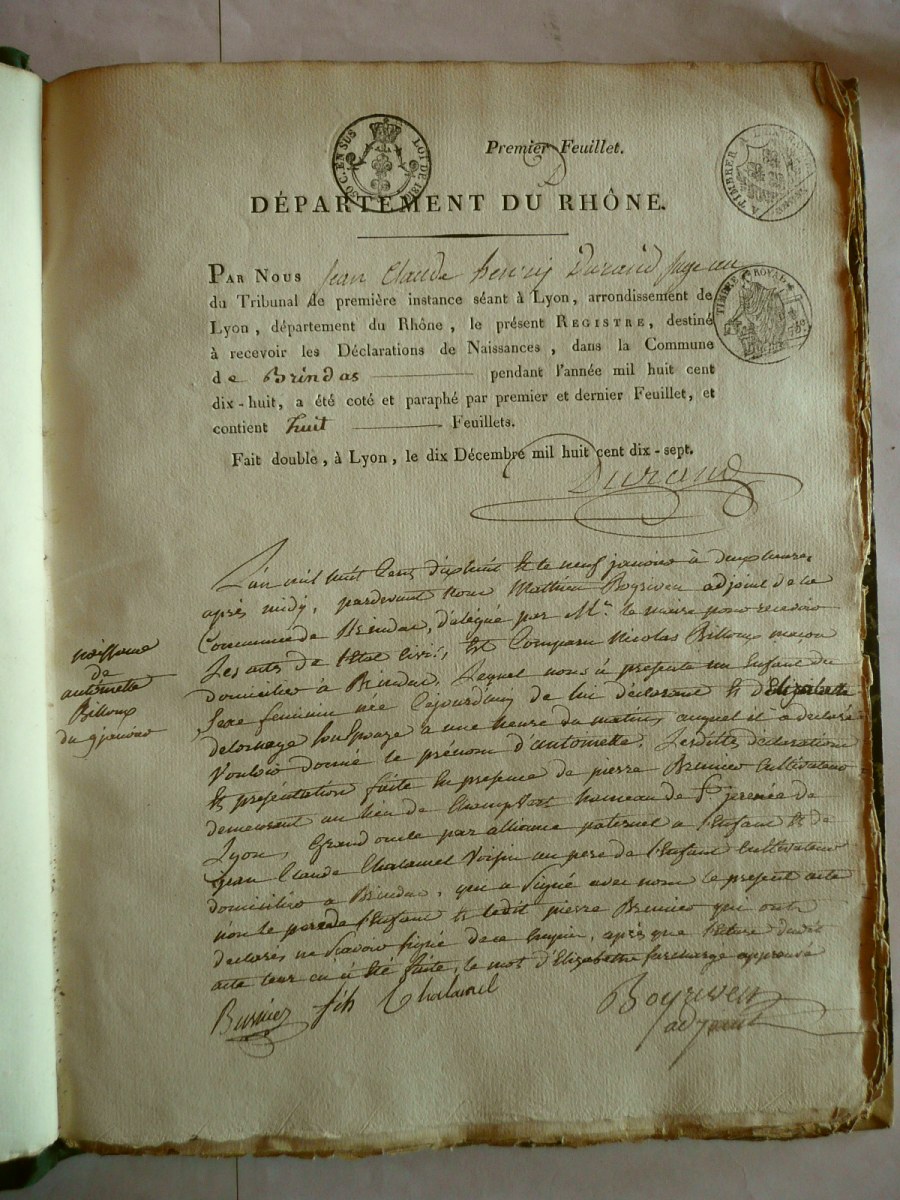 Premier Feuillet.
30 C. EN SUS LOI DE 1816
A TIMBRER A L'EXTRAOR
TIMBRE ROYAL
DÉPARTEMENT DU RHÔNE.
PAR NOUS Jean Claude henry Durand Juge au
du Tribunal de première instance séant à Lyon, arrondissement de
Lyon, département du Rhône, le présent REGISTRE, destiné
à recevoir les Déclarations de Naissances, dans la Commune
de Brindas pendant l'année mil huit cent
dix-huit, a été coté et paraphé par premier et dernier Feuillet, et
contient huit Feuillets.
Fait double, à Lyon, le dix Décembre mil huit cent dix-sept.
Durand
L'an mil huit Cent dixhuit & le neuf janvier à deux heures
après midy, pardevant nous Mathieu Boyriven adjoint de la
Commune de Brindas, délégué par Mr. le maire pour recevoir
Les actes de l'état civil, Est Comparu Nicolas Billoux maçon
domicilié à Brindas. Lequel nous à présenté un Enfant du
Sexe feminin née Cejourd'huy de lui déclarant & d'Elizabeth
delornage son Epouze a une heure du matin, auquel il a declaré
Vouloir donné le prénom d'antoinette. Lesdittes déclaration
& présentation faite En présence de pierre Cultivateur
demeurant au lieu de hameau de St. jrenée de
Lyon, Grand oncle par alliance paternel a l'Enfant & de
Jean Claude Chalamel Voisin au pere de l'Enfant Cultivateur
domicilié a Brindas, qui a Signé avec nous le présent acte
non le pere de l'Enfant & ledit pierre qui ont
declarés ne Savoir Signé de ce Enquis, après que lecture dudit
acte leur en à Eté faite, le mot d'Elizabeth Surchargé approuvé
naissance
de
antoinette
Billoux
du 9 janvier
fils Chalamel
Boyriven
adjoint